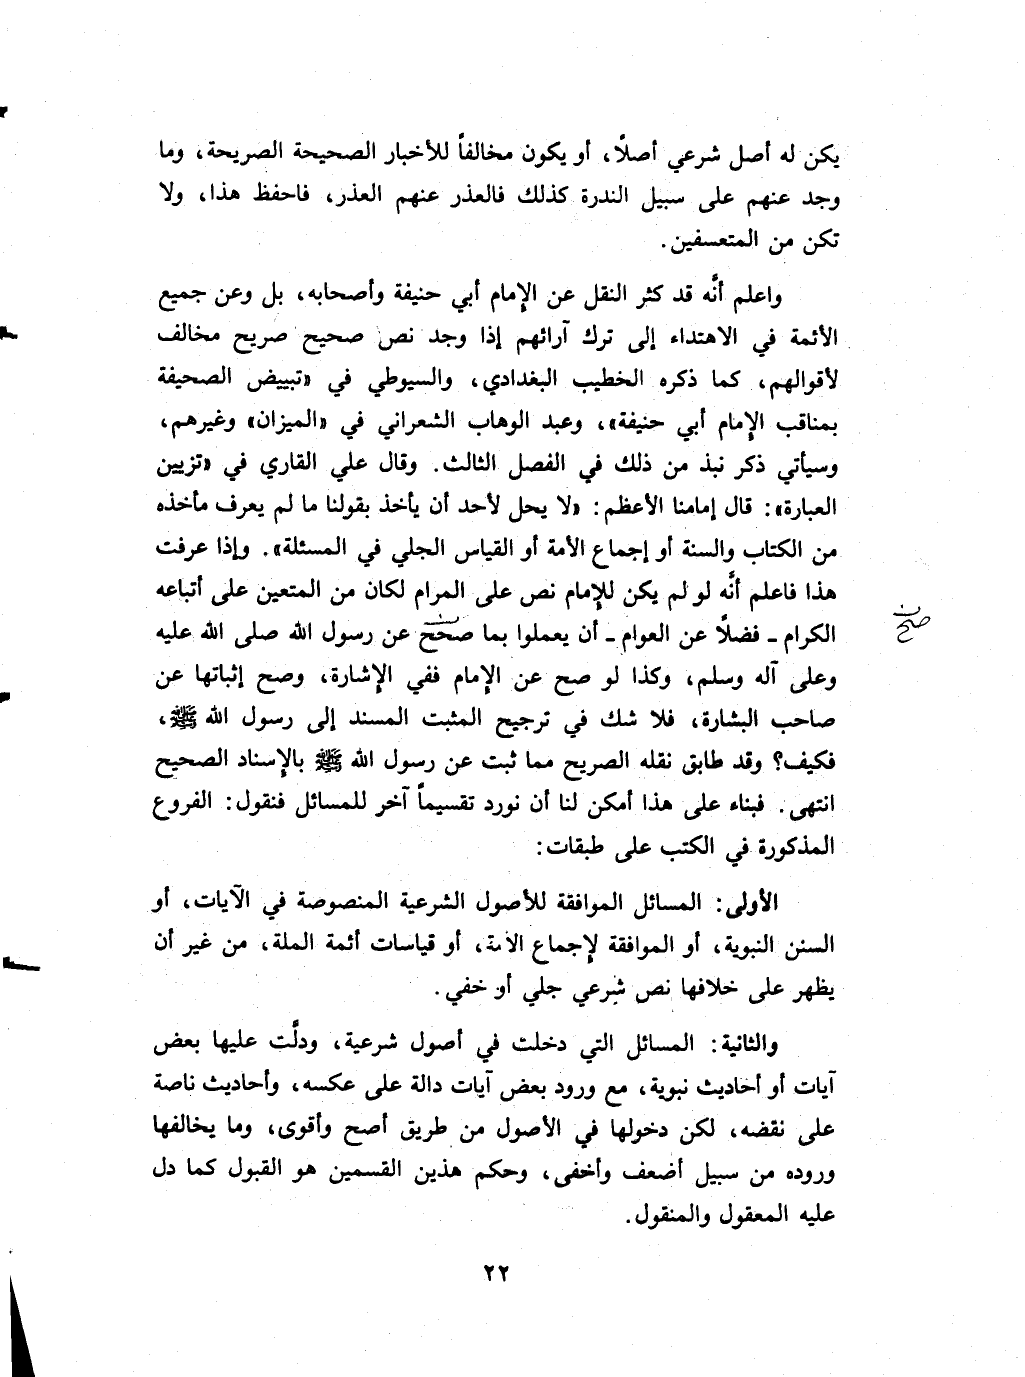 يكن له أصل شرعي أصلًا، أو يكون مخالفاً للأخبار الصحيحة الصريحة، وما
وجد عنهم على سبيل الندرة كذلك فالعذر عنهم العذر، فاحفظ هذا، ولا
تكن من المتعسفين.
واعلم أنَّه قد كثر النقل عن الإمام أبي حنيفة وأصحابه، بل وعن جميع
الأئمة في الاهتداء إلى ترك آرائهم إذا وجد نص صحيح صريح مخالف
لأقوالهم، كما ذكره الخطيب البغدادي، والسيوطي في «تبييض الصحيفة
بمناقب الإمام أبي حنيفة»، وعبد الوهاب الشعراني في «الميزان» وغيرهم،
وسيأتي ذكر نبذ من ذلك في الفصل الثالث. وقال علي القاري في «تزيين
العبارة»: قال إمامنا الأعظم: «لا يحل لأحد أن يأخذ بقولنا ما لم يعرف مأخذه
من الكتاب والسنة أو إجماع الأمة أو القياس الجلي في المسئلة». وإذا عرفت
هذا فاعلم أنَّه لو لم يكن للإمام نص على المرام لكان من المتعين على أتباعه
الكرام ـ فضلًا عن العوام ـ أن يعملوا بما صحح عن رسول الله صلى الله عليه
وعلى آله وسلم، وكذا لو صح عن الإمام ففي الإشارة، وصح إثباتها عن
صاحب البشارة، فلا شك في ترجيح المثبت المسند إلى رسول الله ﷺ،
فكيف؟ وقد طابق نقله الصريح مما ثبت عن رسول الله ﷺ بالإسناد الصحيح
انتهى. فبناء على هذا أمكن لنا أن نورد تقسيماً آخر للمسائل فنقول: الفروع
المذكورة في الكتب على طبقات:
الأولى: المسائل الموافقة للأصول الشرعية المنصوصة في الآيات، أو
السنن النبوية، أو الموافقة لإجماع الأمة، أو قياسات أئمة الملة، من غير أن
يظهر على خلافها نص شرعي جلي أو خفي.
والثانية: المسائل التي دخلت في أصول شرعية، ودلَّت عليها بعض
آيات أو أحاديث نبوية، مع ورود بعض آيات دالة على عكسه، وأحاديث ناصة
على نقضه، لكن دخولها في الأصول من طريق أصح وأقوى، وما يخالفها
وروده من سبيل أضعف وأخفى، وحكم هذين القسمين هو القبول كما دل
عليه المعقول والمنقول.
٢٢